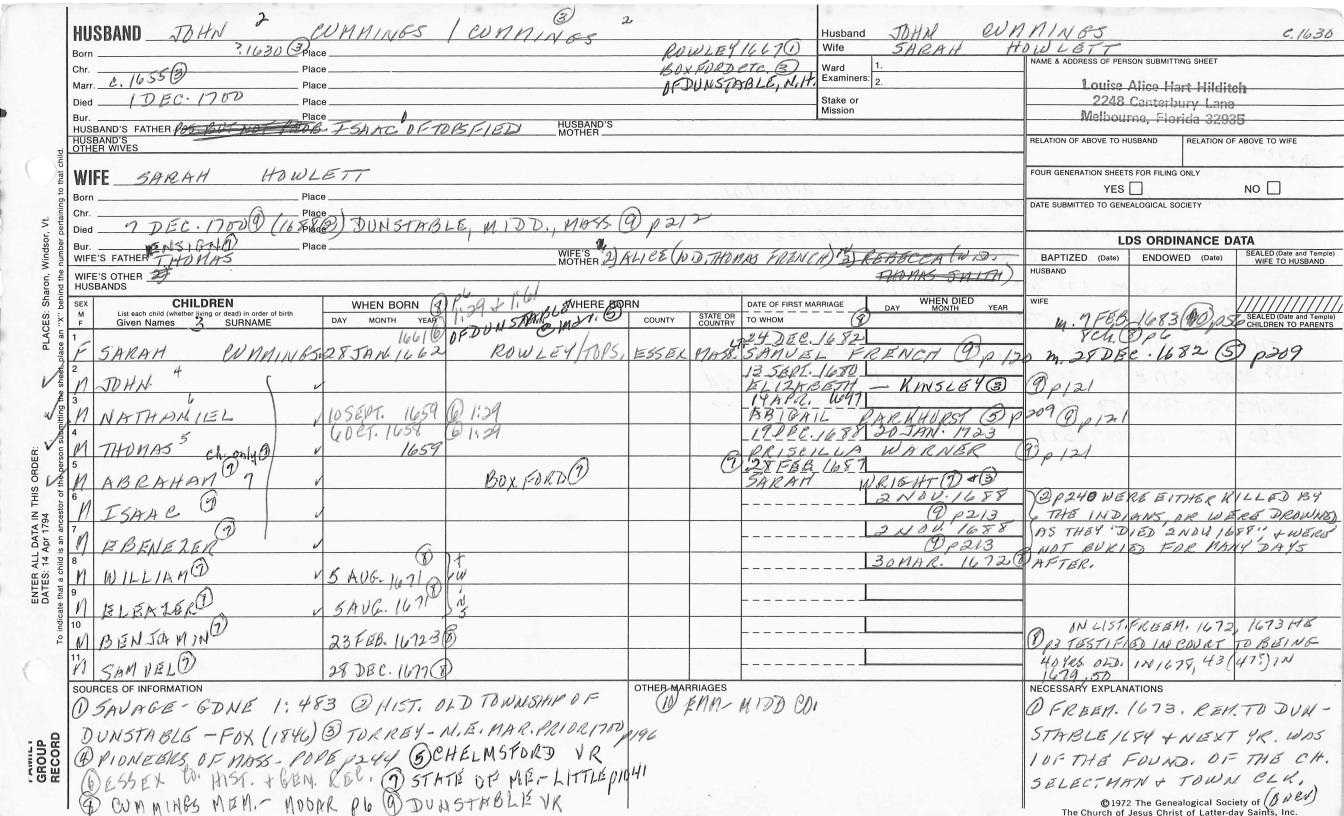 HUSBAND JOHN 2 CUMMINGS / CUMMINGS ③ 2
Born ?1630 ③ Place ROWLEY 1667 ①
Chr. Place BOXFORD etc. ③
Marr. c. 1655 ③ Place OF DUNSTABLE, N.H.
Died 1 DEC. 1700 Place
Bur. Place
HUSBAND'S FATHER ISAAC OF TOPSFIELD HUSBAND'S MOTHER
HUSBAND'S OTHER WIVES
Husband JOHN CUMMINGS c.1630
Wife SARAH HOWLETT
Ward Examiners: 1. 2.
Stake or Mission
NAME & ADDRESS OF PERSON SUBMITTING SHEET
Louise Alice Hart Hilditch
2248 Canterbury Lane
Melbourne, Florida 32935
RELATION OF ABOVE TO HUSBAND RELATION OF ABOVE TO WIFE
FOUR GENERATION SHEETS FOR FILING ONLY
YES NO
DATE SUBMITTED TO GENEALOGICAL SOCIETY
WIFE SARAH HOWLETT
Born Place
Chr. Place
Died 7 DEC. 1700 ⑨ Place DUNSTABLE, MIDD., MASS ⑨ p212
Bur. Place
WIFE'S FATHER ENSIGN ⑦ THOMAS WIFE'S MOTHER ALICE (WD. THOMAS FRENCH) REBECCA (WD. THOMAS SMITH)
WIFE'S OTHER HUSBANDS
LDS ORDINANCE DATA
BAPTIZED (Date) ENDOWED (Date) SEALED (Date and Temple) WIFE TO HUSBAND
HUSBAND
WIFE
SEALED (Date and Temple) CHILDREN TO PARENTS
SEX M F
CHILDREN
List each child (whether living or dead) in order of birth
Given Names 3 SURNAME
WHEN BORN ⑧ p6
DAY MONTH YEAR
1:29 & 1:61
WHERE BORN
OF DUNSTABLE @ mar. ⑤
COUNTY STATE OR COUNTRY
DATE OF FIRST MARRIAGE
TO WHOM
WHEN DIED
DAY MONTH YEAR
1 F SARAH CUMMINGS 28 JAN. 1662 1661 ⑥ ROWLEY/TOPS, ESSEX MASS. 24 DEC. 1682 SAMUEL FRENCH ⑨ p120
m. 7 FEB 1683 ⑩ p56
m. 28 DEC. 1682 ⑤ p209
2 M JOHN 4 13 SEPT. 1680 ELIZABETH — KINSLEY ③ ⑨ p121
3 M NATHANIEL 6 10 SEPT. 1659 ⑥ 1:29 14 APR. 1697 ABIGAIL PARKHURST ⑤ p209 ⑨ p121
4 M THOMAS 5 6 OCT. 1658 ⑥ 1:29 1659 19 DEC. 1688 PRISCILLA WARNER 20 JAN. 1723 ⑨ p121
5 M ABRAHAM ⑦ 7 BOXFORD ⑦ ⑨ 28 FEB 1687 SARAH WRIGHT ⑦ & ③
6 M ISAAC ⑦ 2 NOV. 1688 ⑨ p213
7 M EBENEZER ⑦ 2 NOV. 1688 ⑨ p213
8 M WILLIAM ⑦ 5 AUG. 1671 ⑧ 30 MAR. 1672 ⑧
9 M ELEAZER ⑦ 5 AUG. 1671 ⑧
TWINS
10 M BENJAMIN ⑦ 23 FEB. 1672-3 ⑧
11 M SAMUEL ⑦ 28 DEC. 1677 ⑧
② p240 WERE EITHER KILLED BY
THE INDIANS, OR WERE DROWNED
AS THEY "DIED 2 NOV 1688", & WERE
NOT BURIED FOR MANY DAYS
AFTER.
IN LIST. FREEM. 1672, 1673 HE
⑧ p3 TESTIFIED IN COURT TO BEING
40 YRS OLD. IN 1678, 43 (47?) IN
1679, 50
SOURCES OF INFORMATION
① SAVAGE - GDNE 1:483 ② HIST. OLD TOWNSHIP OF
DUNSTABLE - FOX (1846) ③ TORREY - N.E. MAR. PRIOR 1700 p196
④ PIONEERS OF MASS - POPE p244 ⑤ CHELMSFORD VR
⑥ ESSEX CO. HIST. & GEN. REC. ⑦ STATE OF ME. - LITTLE p1041
⑧ CUMMINGS MEM. - MOOAR p6 ⑨ DUNSTABLE VR
OTHER MARRIAGES
⑩ EMM - MIDD CO.
NECESSARY EXPLANATIONS
① FREEM. 1673. REM. TO DUN-
STABLE 1684 & NEXT YR. WAS
1 OF THE FOUND. OF THE CH.
SELECTMAN & TOWN CLK.
(OVER)
©1972 The Genealogical Society of
The Church of Jesus Christ of Latter-day Saints, Inc.
PLACES: Sharon, Windsor, Vt.
ENTER ALL DATA IN THIS ORDER:
DATES: 14 Apr 1794
To indicate that a child is an ancestor of the person submitting the sheet, place an "X" behind the number pertaining to that child.
FAMILY GROUP RECORD